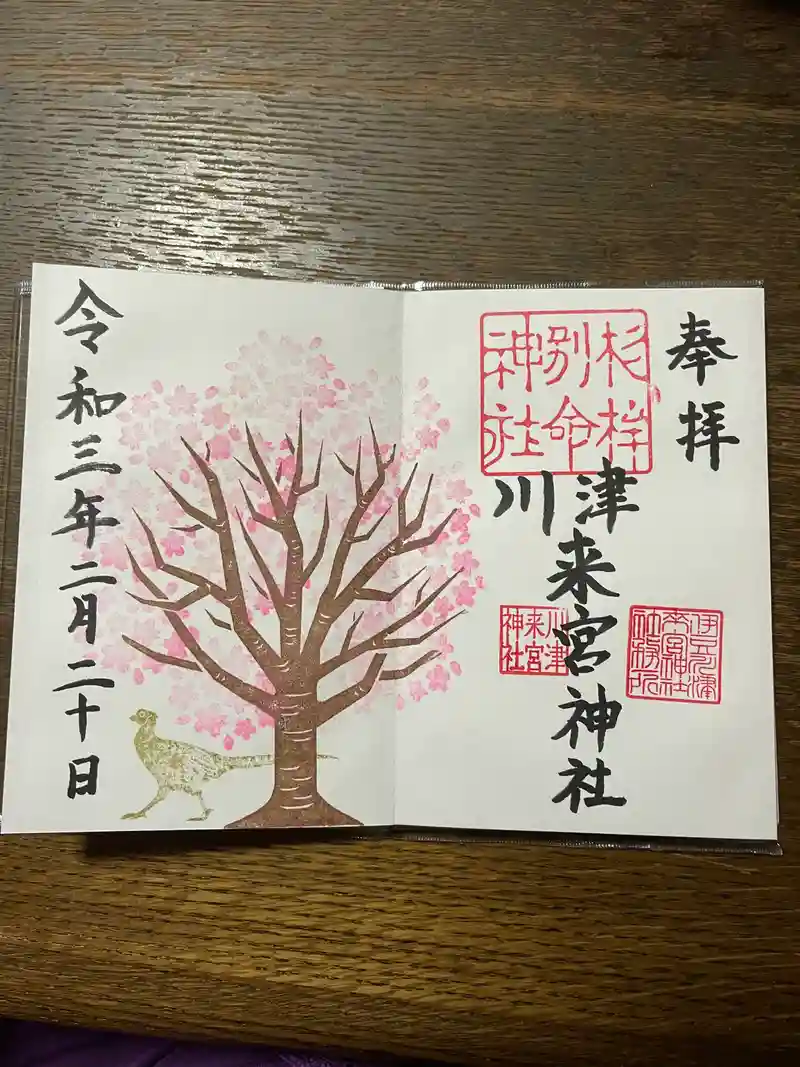 奉拝
杉桙
別命
神社
川津
来宮神社
川津
来宮
神社
伊豆川津
来宮神社
社務所
令和三年二月二十日